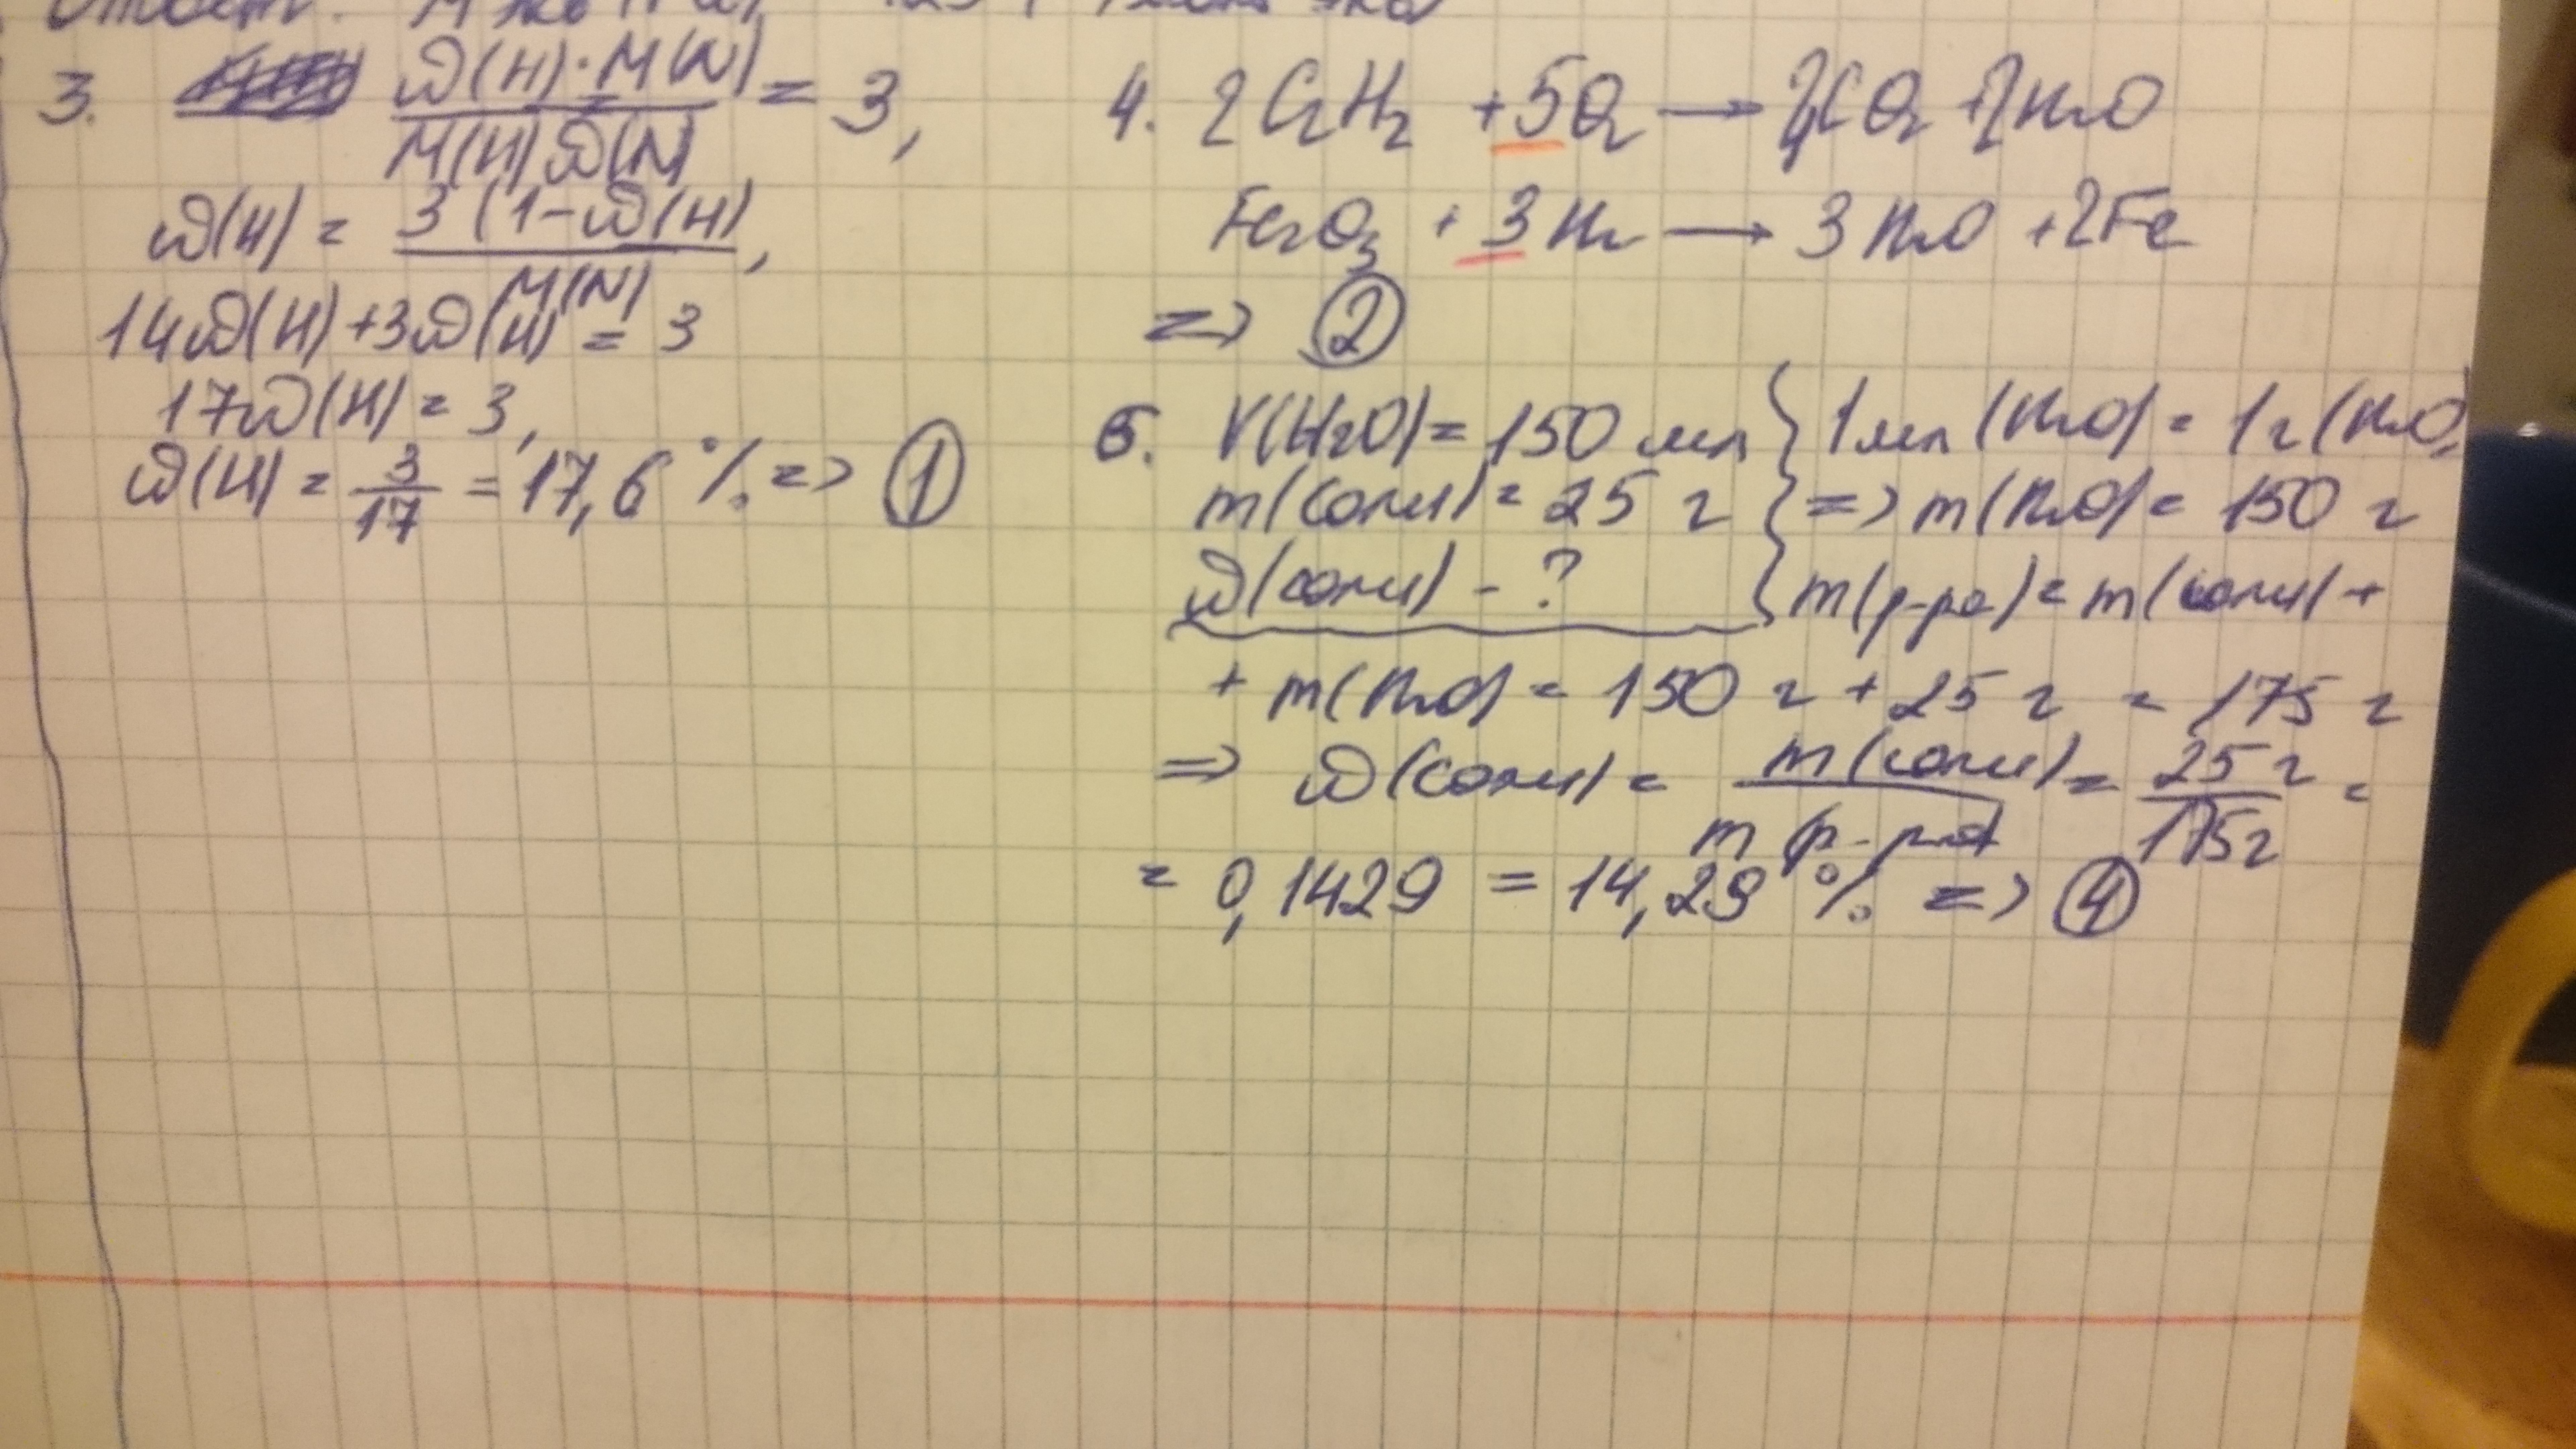 Ответ:
3. ω(H)·M(N) / M(H) ω(N) = 3,
ω(H) = 3 (1-ω(H) / M(N),
14ω(H) + 3ω(H) = 3
17ω(H) = 3,
ω(H) = 3/17 = 17,6 % => ①
4. 2C₂H₂ + 5O₂ → 4CO₂ + 2H₂O
Fe₂O₃ + 3H₂ → 3H₂O + 2Fe
=> ②
5. V(H₂O) = 150 мл } 1мл (H₂O) = 1г (H₂O)
m(соли) = 25 г } => m(H₂O) = 150 г
ω(соли) - ? } m(р-ра) = m(соли) +
+ m(H₂O) = 150 г + 25 г = 175 г
=> ω(соли) = m(соли) / m(р-ра) = 25 г / 175г =
= 0,1429 = 14,29 % => ④